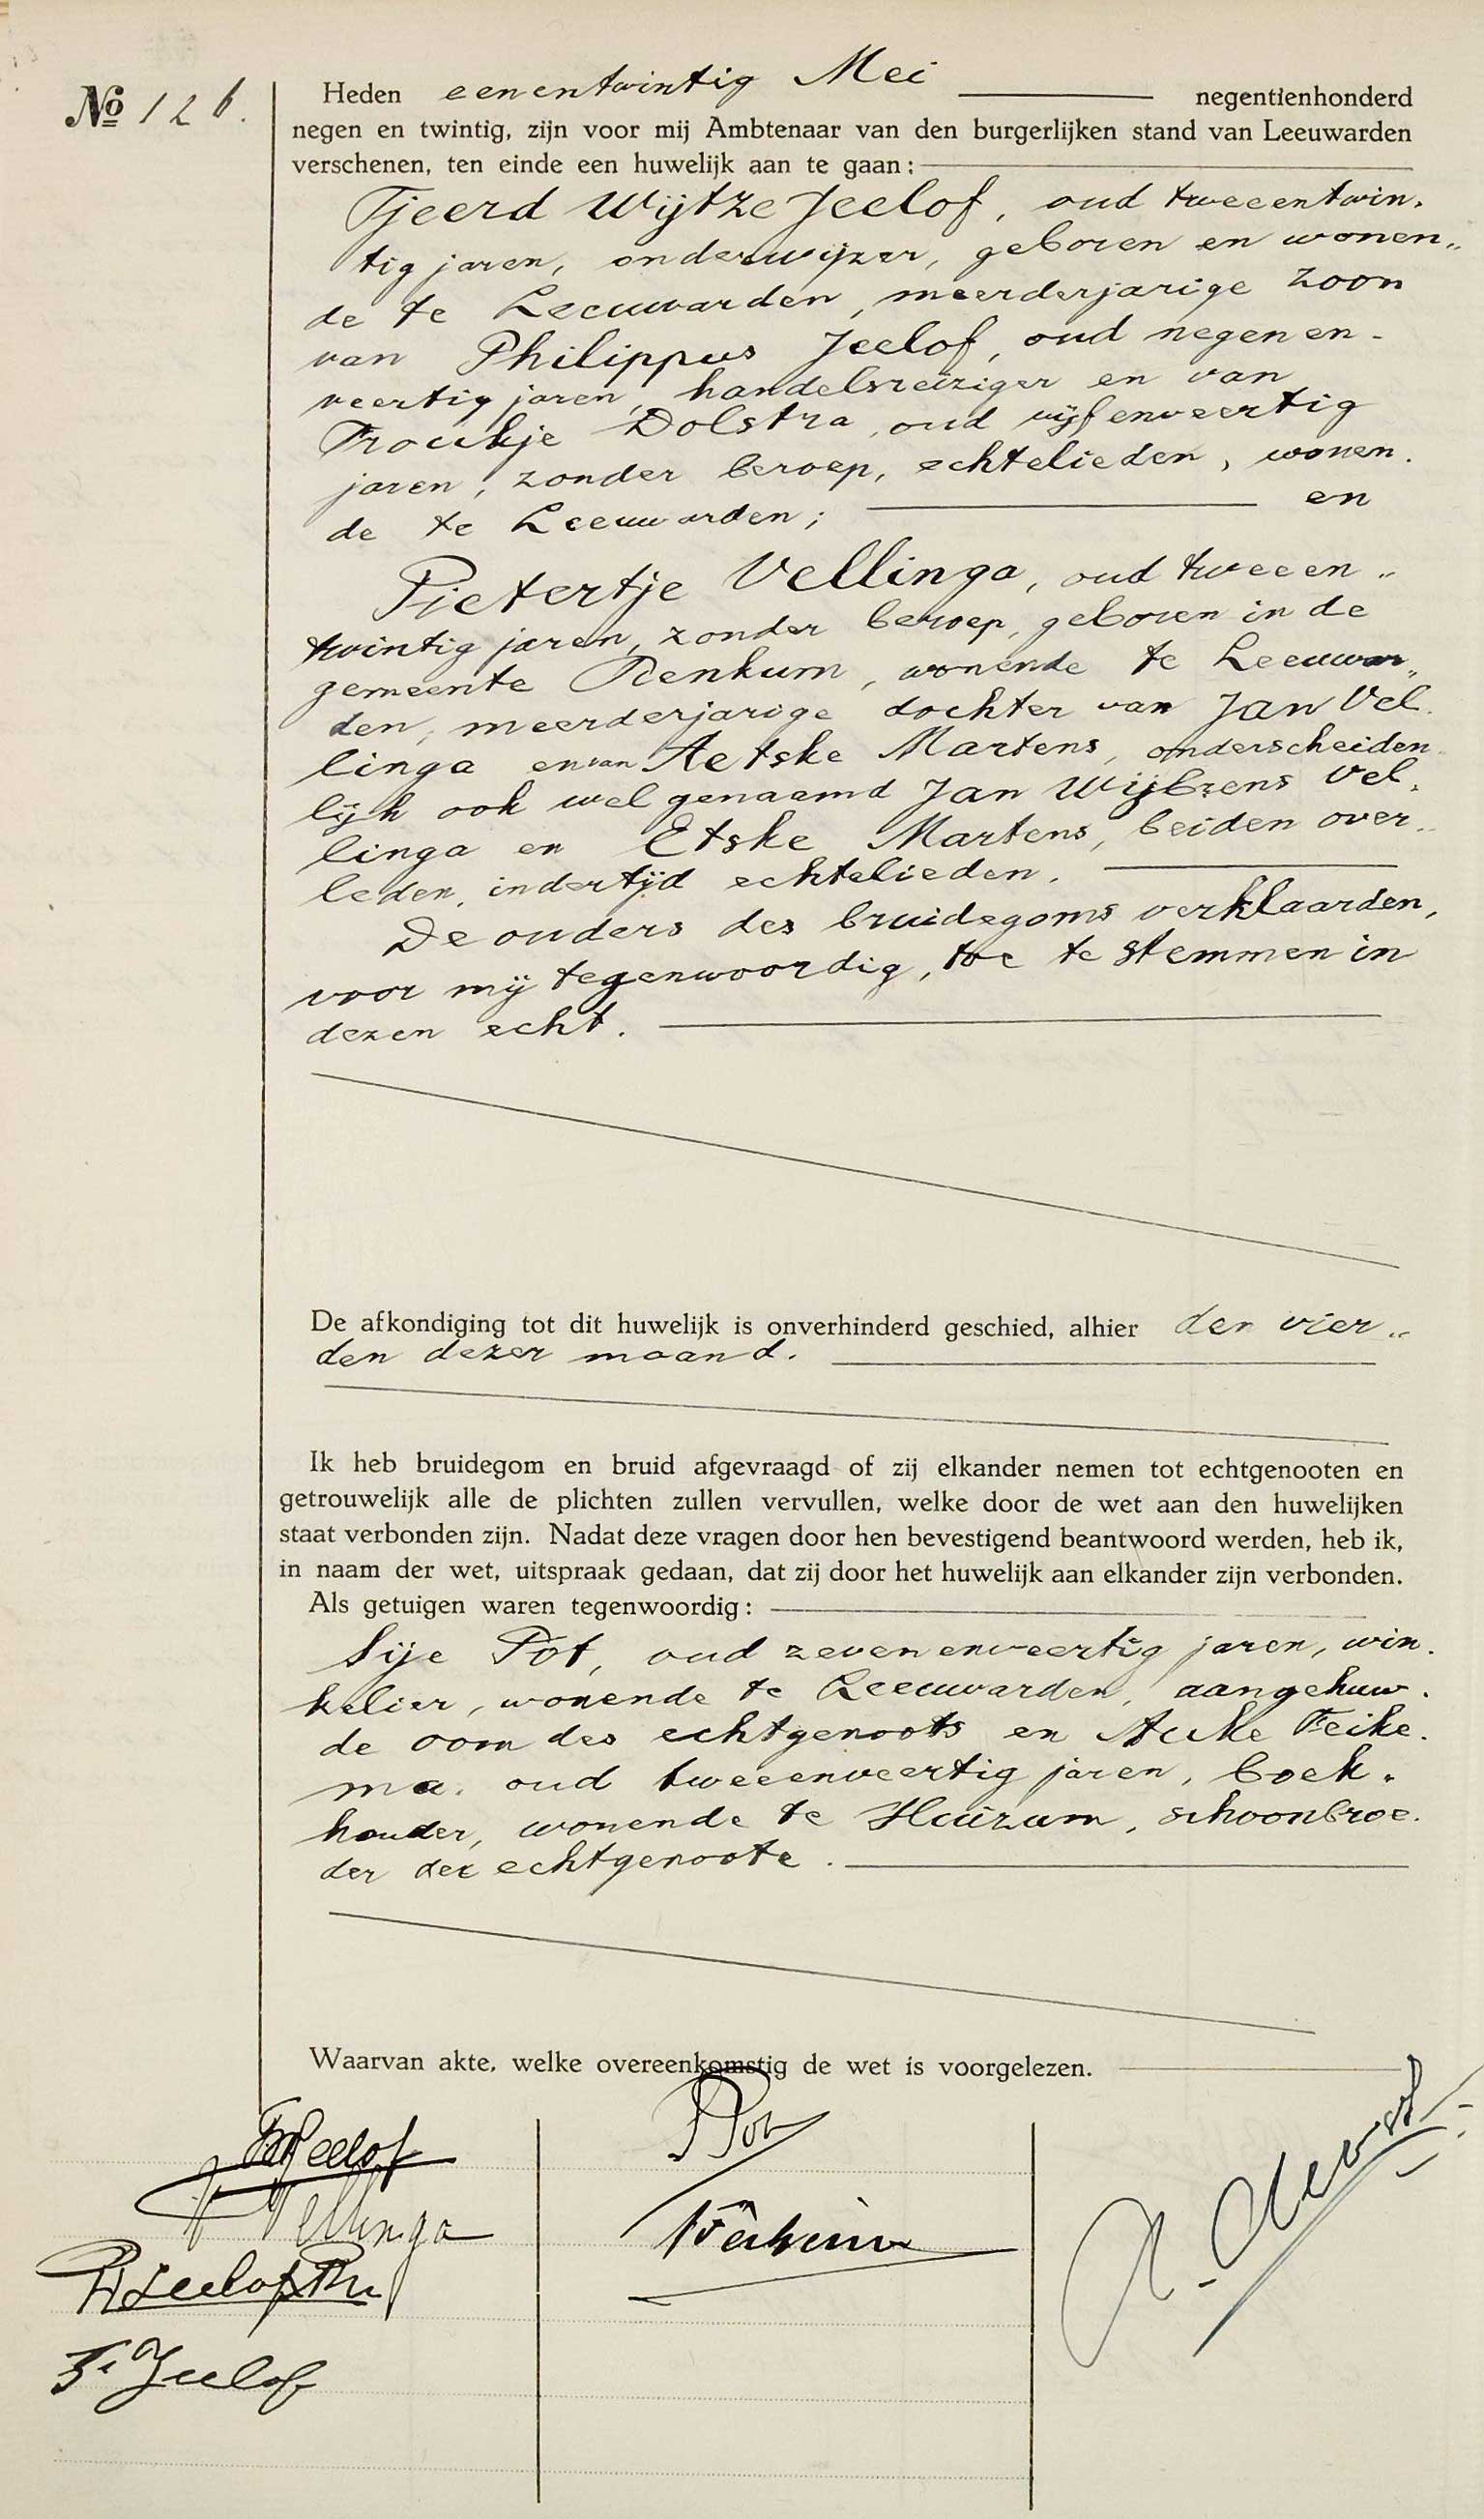 No 126.
Heden eenentwintig Mei negentienhonderd
negen en twintig, zijn voor mij Ambtenaar van den burgerlijken stand van Leeuwarden
verschenen, ten einde een huwelijk aan te gaan:
Tjeerd Wijtze Jeelof, oud tweeentwin-
tig jaren, onderwijzer, geboren en wonen-
de te Leeuwarden, meerderjarige zoon
van Philippus Jeelof, oud negenen-
veertig jaren, handelsreiziger en van
Froukje Dolstra, oud vijfenveertig
jaren, zonder beroep, echtelieden, wonen-
de te Leeuwarden; en
Pietertje Vellinga, oud tweeen-
twintig jaren, zonder beroep, geboren in de
gemeente Renkum, wonende te Leeuwar-
den, meerderjarige dochter van Jan Vel-
linga en van Aetske Martens, onderscheiden-
lijk ook wel genaamd Jan Wijbrens Vel-
linga en Etske Martens, beiden over-
leden, indertijd echtelieden.
De ouders des bruidegoms verklaarden,
voor mij tegenwoordig, toe te stemmen in
dezen echt.
De afkondiging tot dit huwelijk is onverhinderd geschied, alhier den vier-
den dezer maand.
Ik heb bruidegom en bruid afgevraagd of zij elkander nemen tot echtgenooten en
getrouwelijk alle de plichten zullen vervullen, welke door de wet aan den huwelijken
staat verbonden zijn. Nadat deze vragen door hen bevestigend beantwoord werden, heb ik,
in naam der wet, uitspraak gedaan, dat zij door het huwelijk aan elkander zijn verbonden.
Als getuigen waren tegenwoordig:
Sije Pot, oud zevenenveertig jaren, win-
kelier, wonende te Leeuwarden, aangehuw-
de oom des echtgenoots en Auke Feike-
ma, oud tweeenveertig jaren, boek-
houder, wonende te Huizum, schoonbroe-
der der echtgenoote.
Waarvan akte, welke overeenkomstig de wet is voorgelezen.
Jeelof
S Pot
Vellinga
Feikema
Jeelof
Jeelof